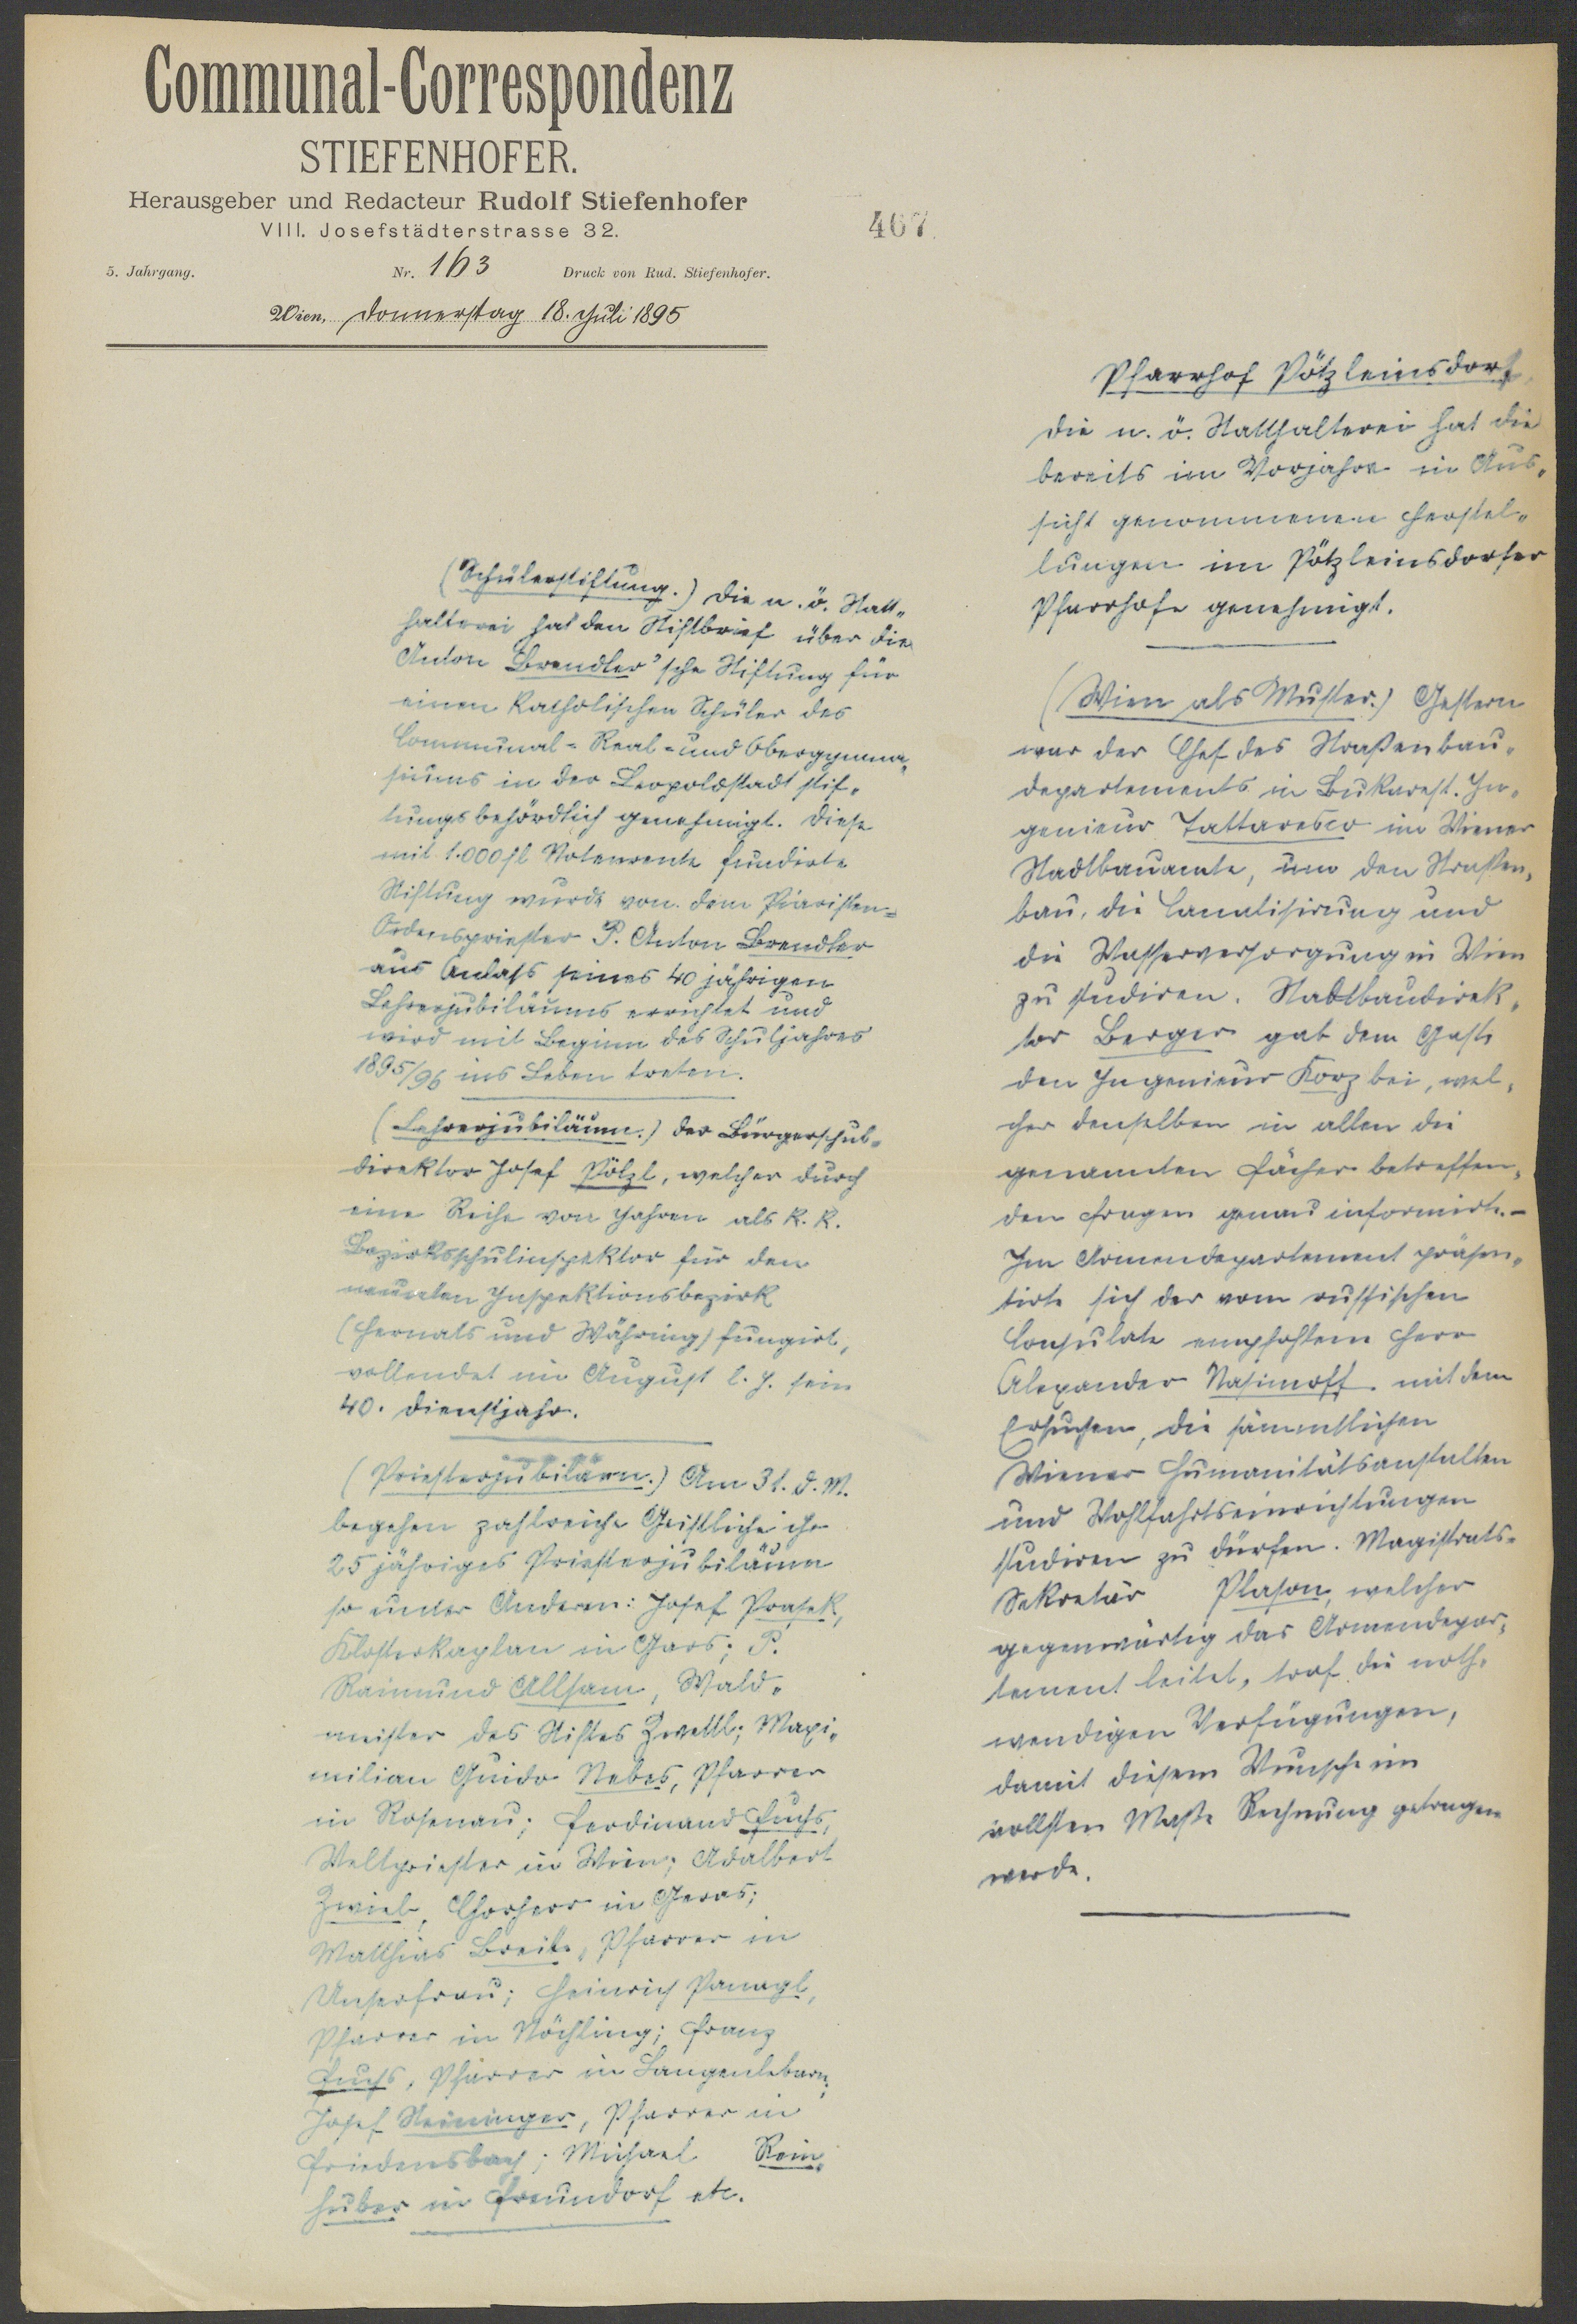 Communal-Correspondenz
STIEFENHOFER.
Herausgeber und Redacteur Rudolf Stiefenhofer
VIII. Josefstädterstrasse 32.
467.
5. Jahrgang. Nr. 163 Druck von Rud. Stiefenhofer.
Wien, Donnerstag 18. Juli 1895
(Schülerstiftung.) Die n. ö. Statt-
halterei hat den Stiftbrief über die
Anton Brendler'sche Stiftung für
einen katholischen Schüler des
Communal-Real- und Obergymna-
siums in der Leopoldstadt stif-
tungsbehördlich genehmigt. Diese
mit 1.000 fl Notenrente fundirte
Stiftung wurde von dem Piaristen-
Ordenspriester P. Anton Brendler
aus Anlaß seines 40 jährigen
Lehrerjubiläums errichtet und
wird mit Beginn des Schuljahres
1895/96 ins Leben treten.
(Lehrerjubiläum.) Der Bürgerschul-
direktor Josef Pötzl, welcher durch
eine Reihe von Jahren als k. k.
Bezirksschulinspektor für den
neunten Inspektionsbezirk
(Hernals und Währing) fungirt,
vollendet im August l. J. sein
40. Dienstjahr.
(Priesterjubiläen.) Am 31. d. M.
begehen zahlreiche Geistliche ihr
25 jähriges Priesterjubiläum
so unter Anderen: Josef Prasek,
Klosterkaplan in Gars; P.
Raimund Allsam, Wald-
meister des Stiftes Zwettl; Maxi-
milian Guido Nebes, Pfarrer
in Rosenau; Ferdinand Fuchs,
Weltpriester in Wien; Adalbert
Zwieb, Chorherr in Geras;
Matthias Breite, Pfarrer in
Unserfrau; Heinrich Panagl,
Pfarrer in Nöchling; Franz
Fuchs, Pfarrer in Langenlebarn;
Josef Steininger, Pfarrer in
Friedersbach; Michael Rein-
huber in Freundorf etc.
Pfarrhof Pötzleinsdorf.
Die n. ö. Statthalterei hat die
bereits im Vorjahre in Aus-
sicht genommenen Herstel-
lungen im Pötzleinsdorfer
Pfarrhofe genehmigt.
(Wien als Muster.) Gestern
war der Chef des Straßenbau-
departements in Bukarest. In-
genieur Tattaresco im Wiener
Stadtbauamte, um den Straßen-
bau, die Canalisirung und
die Wasserversorgung in Wien
zu studiren. Stadtbaudirek-
tor Berger gab dem Gaste
den Ingenieur Korz bei, wel-
cher denselben in allen die
genannten Fächer betreffen-
den Fragen genau informirte. –
Im Armendepartement präsen-
tirte sich der vom russischen
Consulate empfohlene Herr
Alexander Nasimoff mit dem
Ersuchen, die sämmtlichen
Wiener Humanitätsanstalten
und Wohlfahrtseinrichtungen
studiren zu dürfen. Magistrats-
Sekretär Plason, welcher
gegenwärtig das Armendepar-
tement leitet, traf die noth-
wendigen Verfügungen,
damit diesem Wunsche im
vollsten Maße Rechnung getragen
werde.